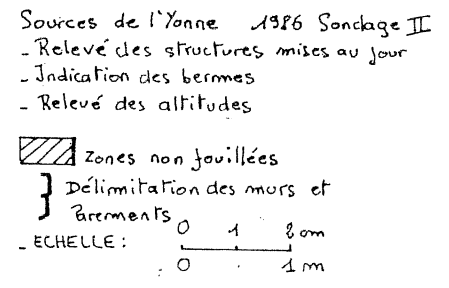 Sources de l'Yonne 1986 Sondage II
- Relevé des structures mises au jour
- Indication des bermes
- Relevé des altitudes
Zones non fouillées
Délimitation des murs et
Parements
- ECHELLE :
0 1 2 cm
0 1 m